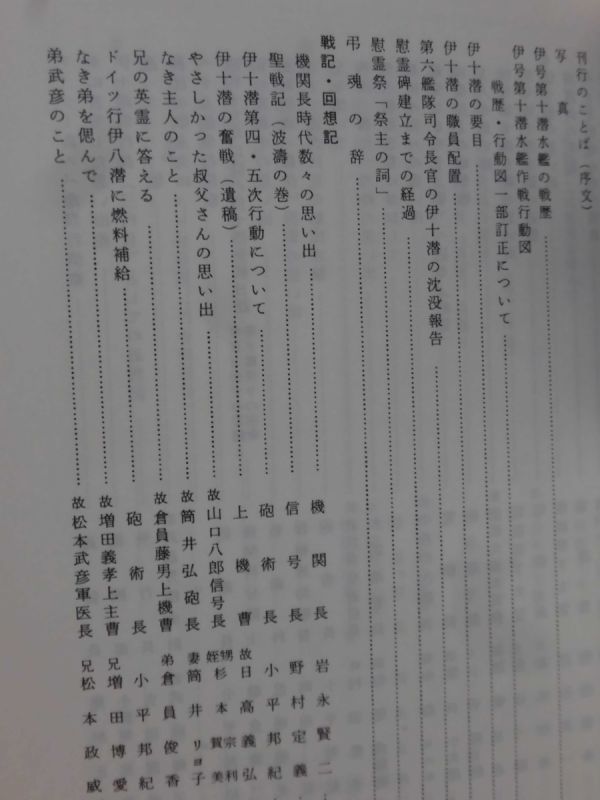 刊行のことば（序文）
写真
伊号第十潜水艦の戦歴
伊号第十潜水艦作戦行動図
戦歴・行動図一部訂正について
伊十潜の要目
伊十潜の職員配置
第六艦隊司令長官の伊十潜の沈没報告
慰霊碑建立までの経過
慰霊祭「祭主の詞」
弔魂の辞
戦記・回想記
機関長時代数々の思い出 機関長 岩永賢二
聖戦記（波濤の巻） 信号長 野村定義
伊十潜第四・五次行動について 砲術長 小平邦紀
伊十潜の奮戦（遺稿） 上機曹 故日高義弘
やさしかった叔父さんの思い出 故山口八郎信号長 甥姪 杉本 宗利 賀美
なき主人のこと 故筒井弘砲長 妻 筒井リヨ子
兄の英霊に答える 故倉員藤男上機曹 弟 倉員俊香
ドイツ行伊八潜に燃料補給 砲術長 小平邦紀
なき弟を偲んで 故増田義孝上主曹 兄 増田博愛
弟武彦のこと 故松本武彦軍医長 兄 松本政威